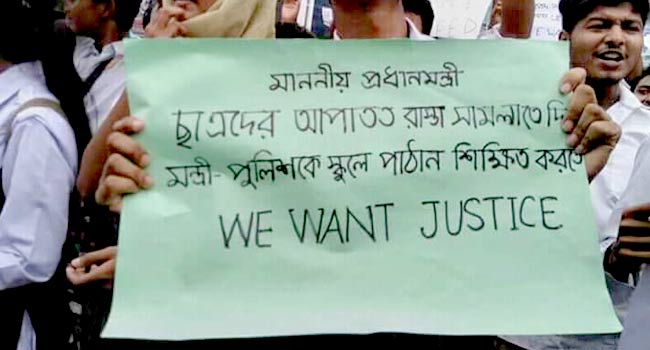 মাননীয় প্রধানমন্ত্রী
ছাত্রদের আপাতত রাস্তা সামলাতে দি
মন্ত্রী-পুলিশকে স্কুলে পাঠান শিক্ষিত করতে
WE WANT JUSTICE